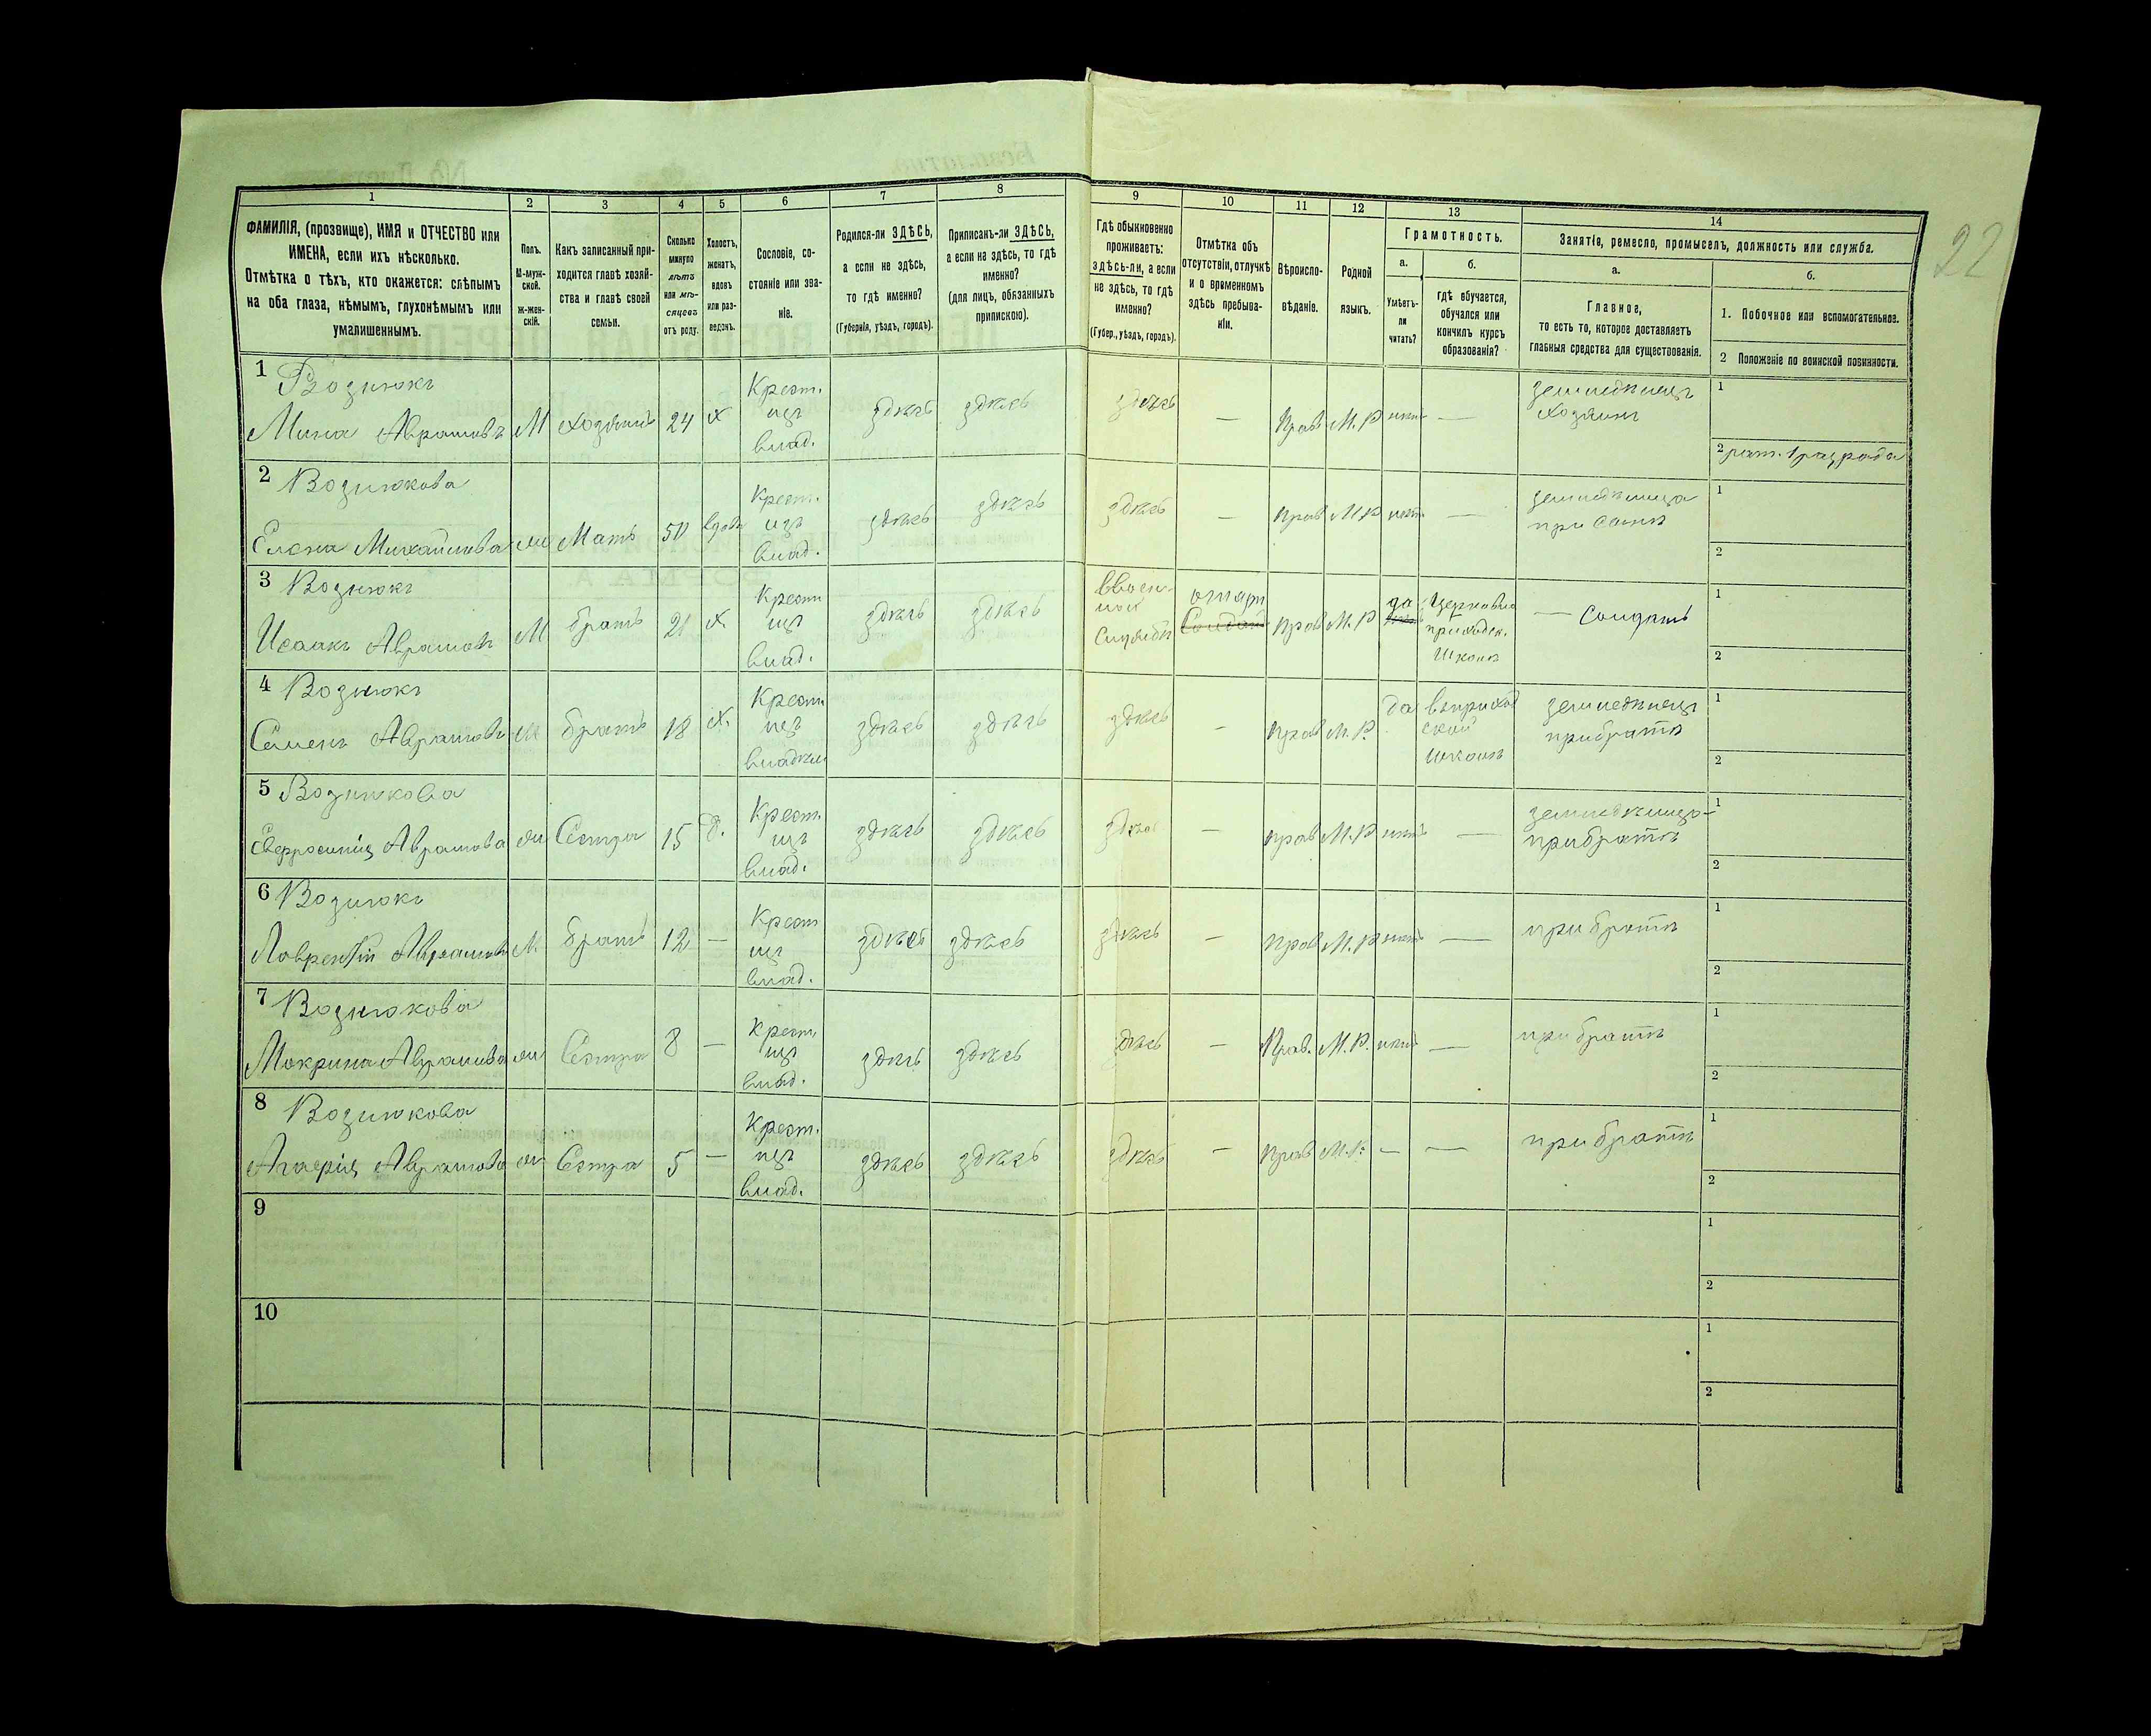 22
1 2 3 4 5 6 7 8 9 10 11 12 13 14
ФАМИЛІЯ, (прозвище), ИМЯ и ОТЧЕСТВО или
ИМЕНА, если ихъ нѣсколько.
Отмѣтка о тѣхъ, кто окажется: слѣпымъ
на оба глаза, нѣмымъ, глухонѣмымъ или
умалишеннымъ.
Полъ.
М-муж-
ской.
Ж-жен-
скій.
Какъ записанный при-
ходится главѣ хозяй-
ства и главѣ своей
семьи.
Сколько
минуло
лѣтъ
или мѣ-
сяцевъ
отъ роду.
Холостъ,
женатъ,
вдовъ
или раз-
веденъ.
Сословіе, со-
стояніе или зва-
ніе.
Родился-ли ЗДѢСЬ,
а если не здѣсь,
то гдѣ именно?
(Губернія, уѣздъ, городъ).
Приписанъ-ли ЗДѢСЬ,
а если не здѣсь, то гдѣ
именно?
(для лицъ, обязанныхъ
припискою).
Гдѣ обыкновенно
проживаетъ:
здѣсь-ли, а если
не здѣсь, то гдѣ
именно?
(Губер., уѣздъ, городъ).
Отмѣтка объ
отсутствіи, отлучкѣ
и о временномъ
здѣсь пребыва-
ніи.
Вѣроиспо-
вѣданіе.
Родной
языкъ.
Грамотность.
а.
Умѣетъ-
ли
читать?
б.
гдѣ обучается,
обучался или
кончилъ курсъ
образованія?
Занятіе, ремесло, промыселъ, должность или служба.
а.
Главное,
то есть то, которое доставляетъ
главныя средства для существованія.
б.
1. Побочное или вспомогательное.
2 Положеніе по воинской повинности.
1 Вознюкъ
Мина Аврамовъ М хозяинъ 24 х
Крест.
изъ
влад.
здѣсь здѣсь здѣсь — Прав М.Р нѣтъ —
земледѣлецъ
хозяинъ
1
2 рат. 1 разряда
2 Вознюкова
Елена Михайлова ж Мать 50 вдова
Крест.
изъ
влад.
здѣсь здѣсь здѣсь — прав М.Р нѣтъ —
земледѣлица
при сынѣ
1
2
3 Вознюкъ
Исаакъ Аврамовъ М братъ 21 х.
Крест
изъ
влад.
здѣсь здѣсь
ввоен-
ной
службѣ
прав М.Р да
Церковно
приходск.
школѣ
— Солдатъ
1
2
4 Вознюкъ
Семенъ Аврамовъ М братъ 18 х.
Крест
изъ
владѣл
здѣсь здѣсь здѣсь — прав М.Р. да
вприход
ской
школѣ
земледѣлецъ
прибратѣ
1
2
5 Вознюкова
Евфросинія Аврамова ж Сестра 15 д.
Крест.
изъ
влад.
здѣсь здѣсь здѣсь — прав М.Р нѣтъ —
земледѣлица
прибратѣ
1
2
6 Вознюкъ
Лаврентій Аврамовъ М братъ 12 —
Крест
изъ
влад.
здѣсь здѣсь здѣсь — прав М.Р нѣтъ —
при братѣ
1
2
7 Вознюкова
Макрина Аврамова ж Сестра 8 —
Крест.
изъ
влад.
здѣсь здѣсь здѣсь — Прав. М.Р. нѣтъ —
при братѣ
1
2
8 Вознюкова
Агафія Аврамова ж Сестра 5 —
Крест.
изъ
влад.
здѣсь здѣсь здѣсь — прав М.Р. — —
при братѣ
1
2
9
1
2
10
1
2